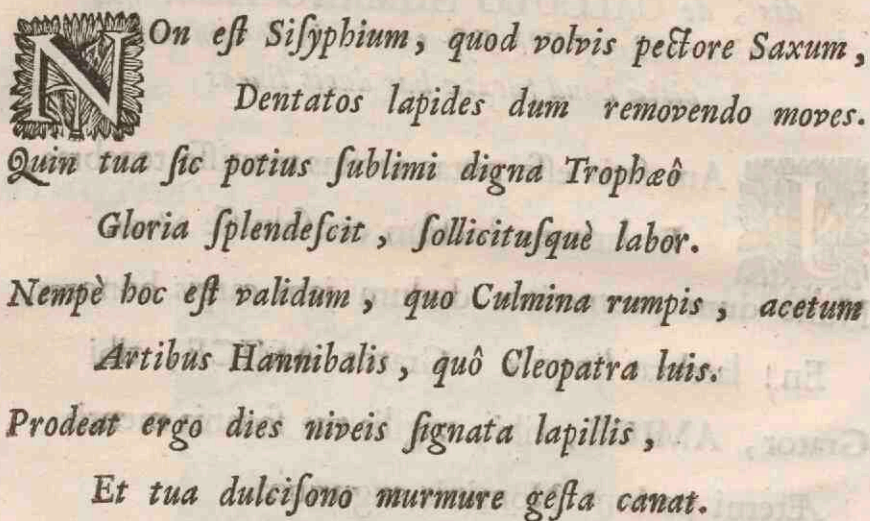 NOn eſt Siſyphium, quod volvis pectore Saxum,
Dentatos lapides dum removendo moves.
Quin tua ſic potius ſublimi digna Trophæô
Gloria ſplendeſcit, ſollicituſquè labor.
Nempè hoc eſt validum, quo Culmina rumpis, acetum
Artibus Hannibalis, quô Cleopatra luis.
Prodeat ergo dies niveis ſignata lapillis,
Et tua dulciſono murmure geſta canat.